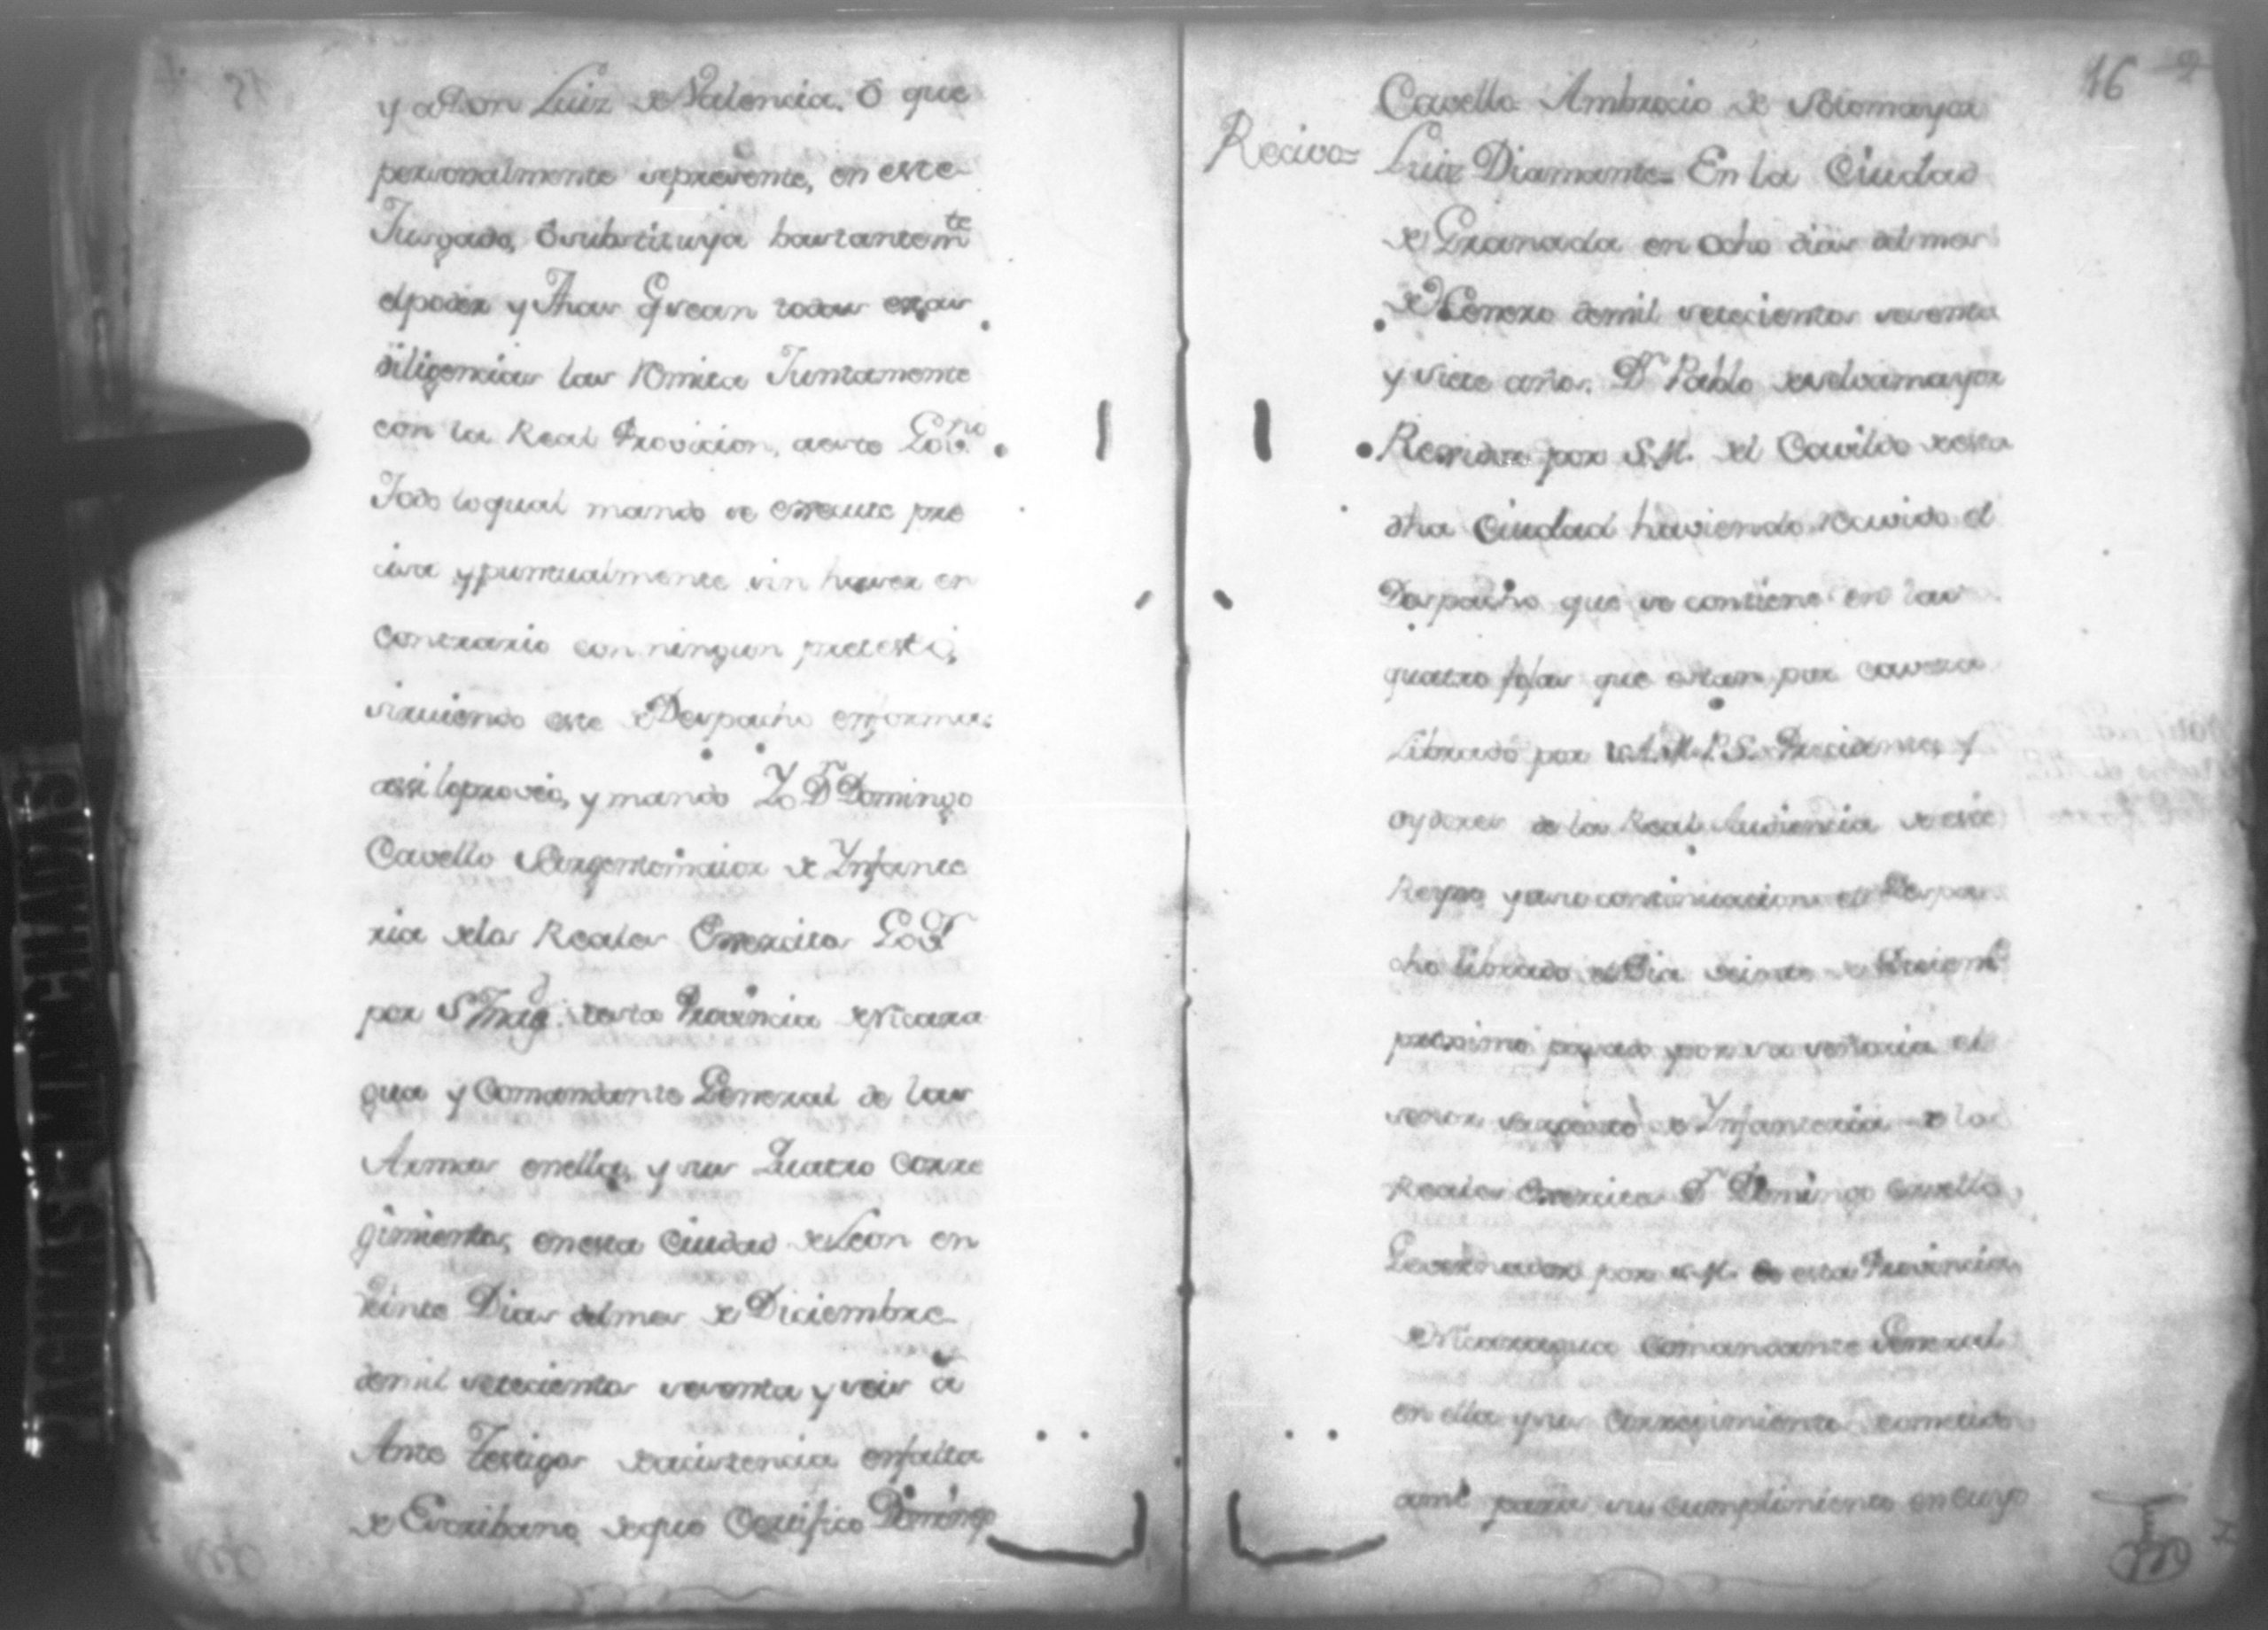 y a Don Luiz de Valencia. ô que
personalmente se presente, en este
Jusgado, ô substituya bastantemte
el poder y fhas q sean todas estas
diligencias las Remita Juntamente
con la Real Provicion, a este Govno
Todo lo qual mando se execute pre
cisa y puntualmente sin haver en
contrario con ningun pretesto,
sirviendo este de Despacho en forma:
assi lo proveo, y mando Yo Dn Domingo
Cavello Sargentomaior de Ynfante
ria delos Reales Exercitos Govr
por S Magd. de esta Provincia de Nicara
gua y Comandante General de las
Armas en ella, y sus Quatro Corre
gimientos, en esta Ciudad de Leon en
veinte Dias del mes de Diciembre
de mil setecientos sesenta y seis as
Ante Testigos de acistencia en falta
de Escribano de que Certifico Domingo
16 2
Cavello Ambrocio de Sotomayor
Recivo= Luiz Diamante= En la Ciudad
de Granada en ocho dias del mes
de Henero de mil setecientos sesenta
y siete años. Dn Pablo de Selvamayor
Regidor por S.M. del Cavildo de esta
dha Ciudad haviendo recivido el
Despacho que se contiene en las
quatro fojas que estan por cavesa
Librado por los M.P.S. Precidente, y
oydores de la Real Audiencia de este
Reyno y a su continuacion el Despa
cho librado el Dia veinte de Diciemb
proximo pasado por su señoria el
señor sargento de Ynfanteria de los
Reales Exercitos Dn Domingo Cavello,
Governador por S.M. de esta Provincia
de Nicaragua Comandante General
en ella y sus Corregimientos cometido
a mi para su cumplimiento en cuyo
PAGINAS MANCHADAS